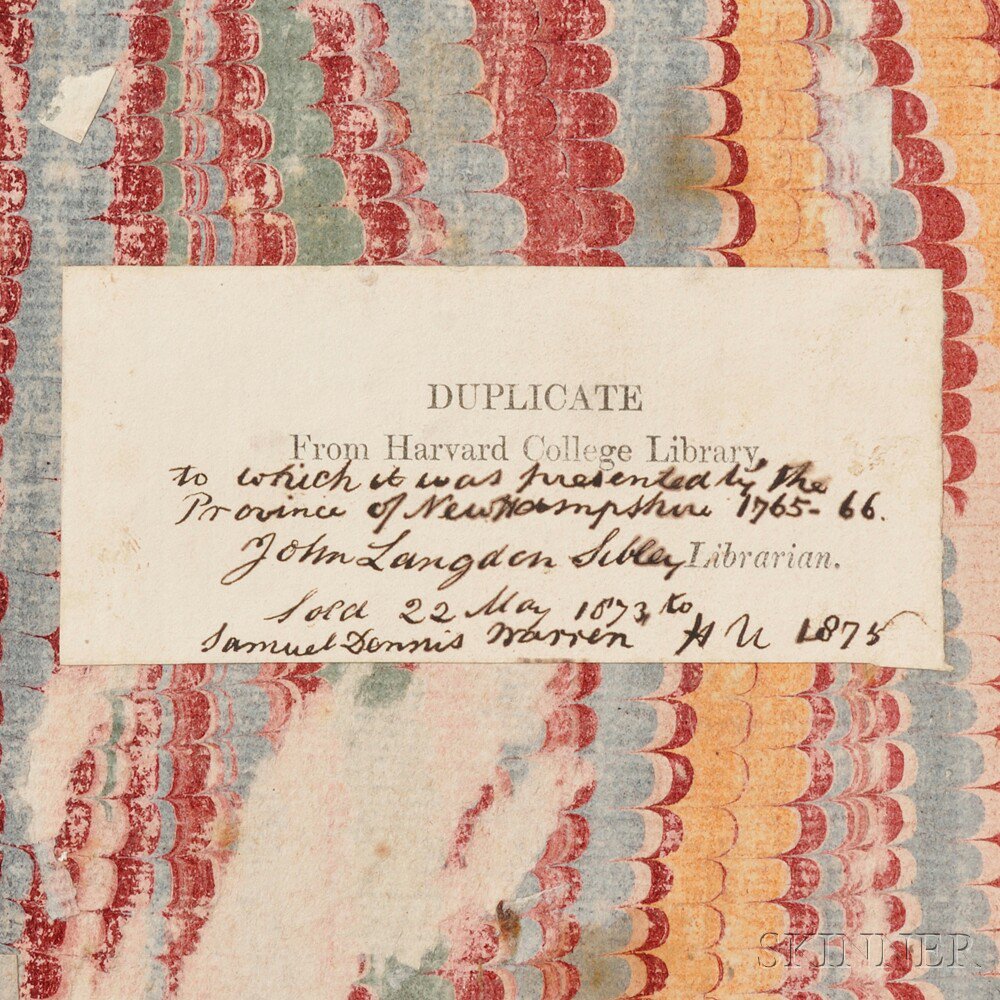 DUPLICATE
From Harvard College Library,
to which it was presented by the
Province of New Hampshire 1765-66.
John Langdon Sibley Librarian.
Sold 22 May 1873, to
Samuel Dennis Warren H U 1875
SKINNER